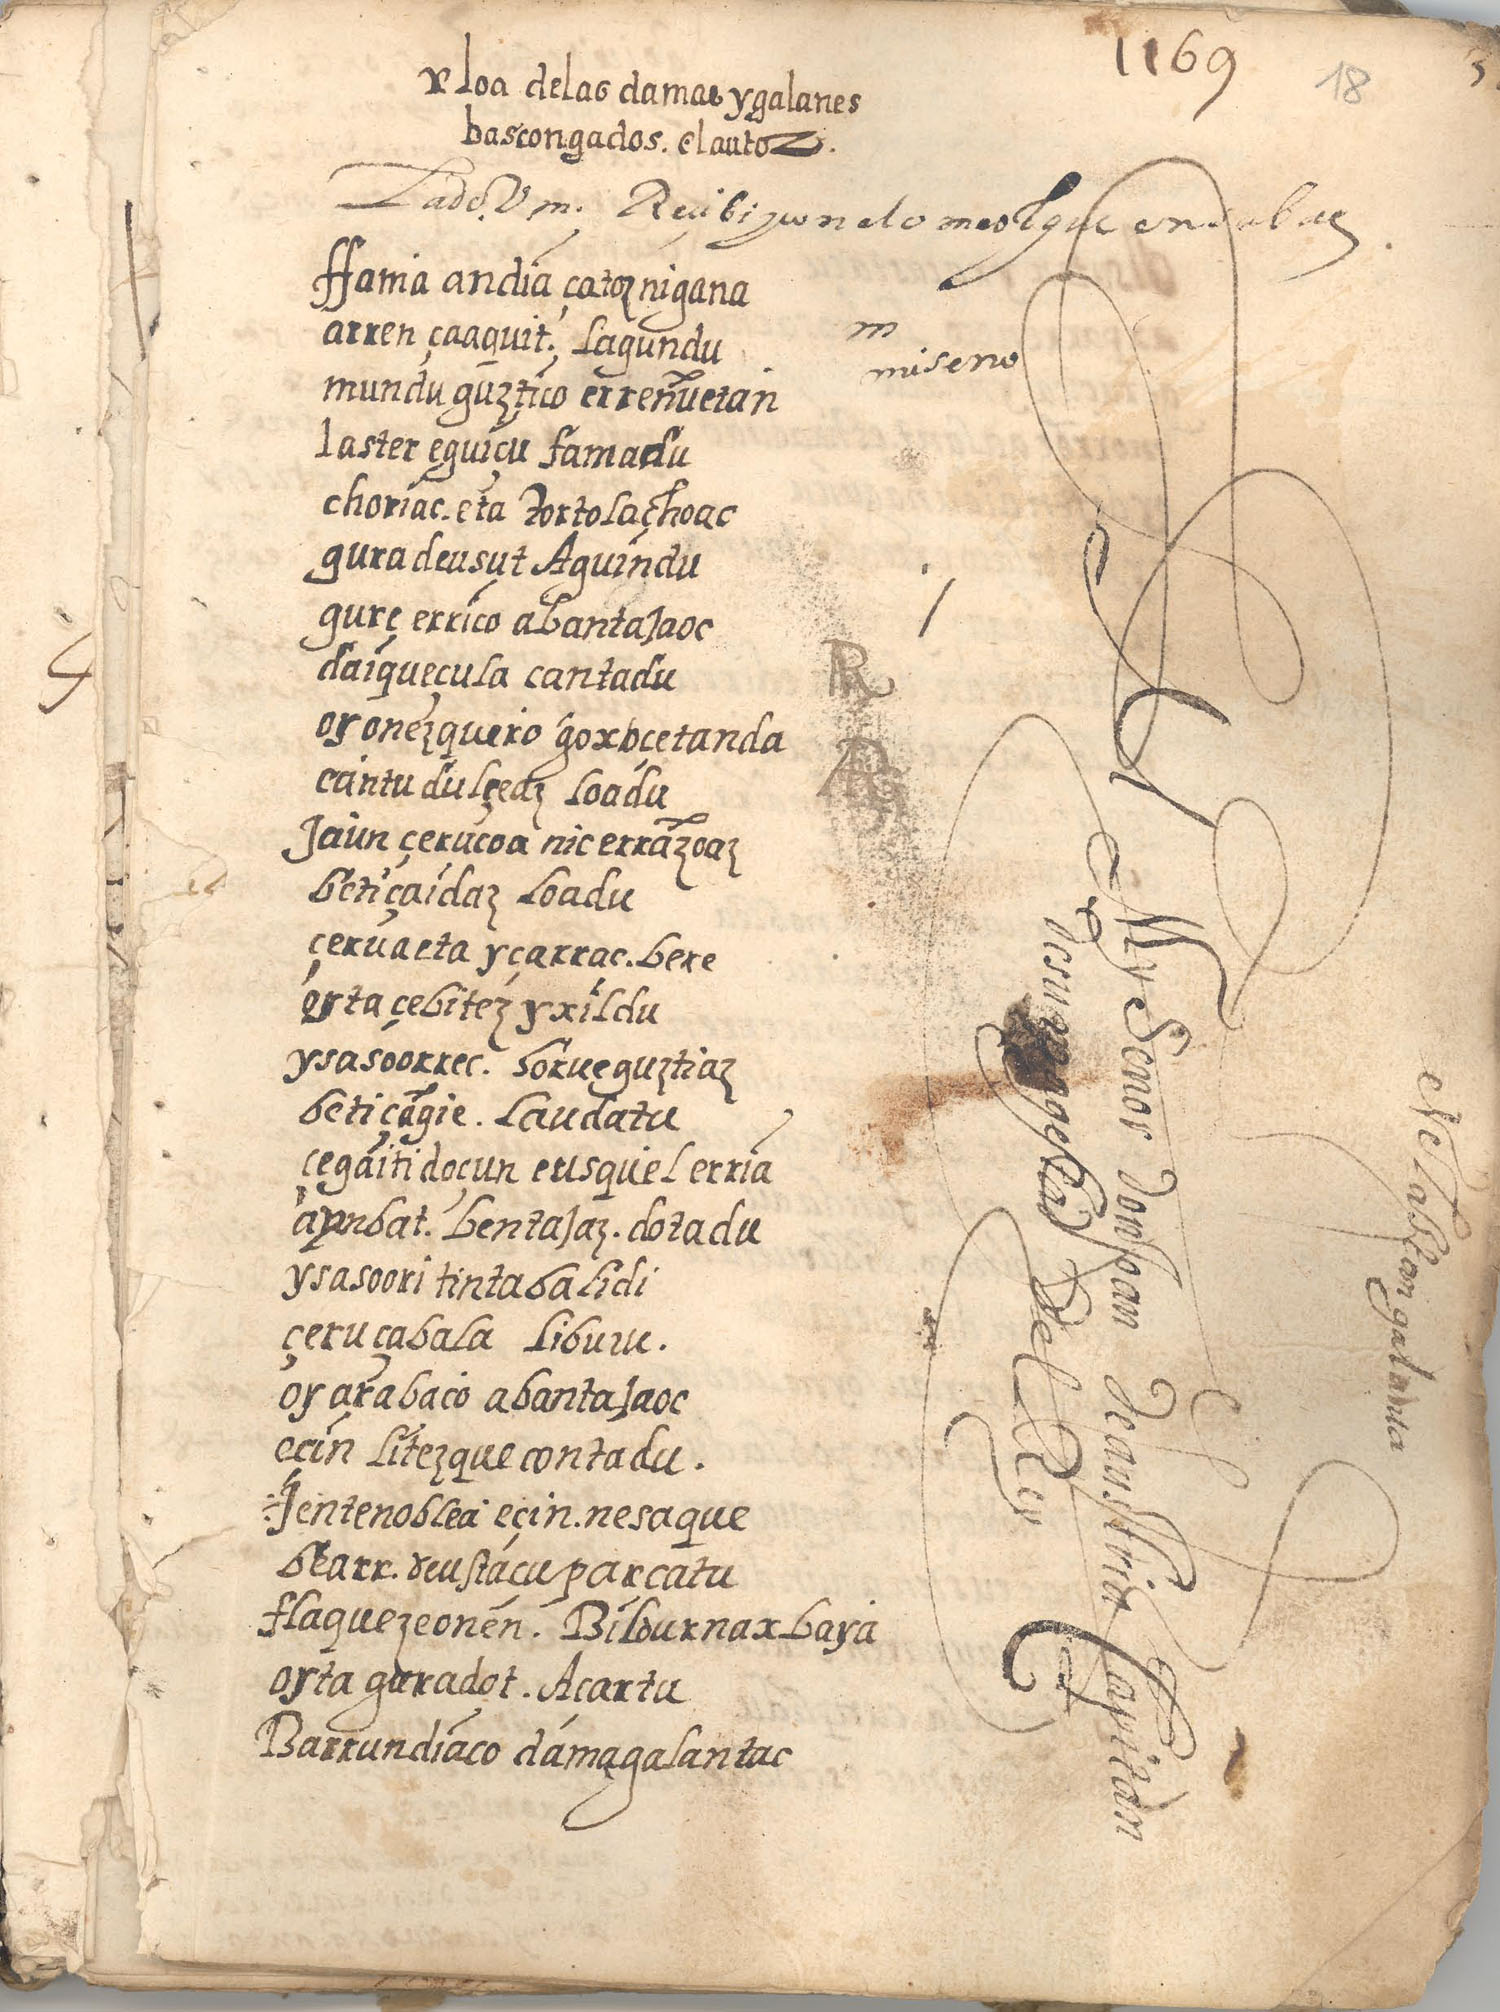 1169
18
r loa delas damas y galanes
bascongados. el autor.
Lado. V m. Recibi con elo mesol que en
ffama andia çatoz nigana
arren çaaquit. Lagundu
mundu guztico erreñuetan
laster eguiçu famadu
choriac. eta Tortolachoac
gura deusut Aguindu
gure errico abantaJaoc
daiqueçula cantadu
oy onezquero goxoçetanda
cantu dulçeaz Loadu
Jaun çerucoa nic errazoaz
beti çaidaz Loadu
çerua eta yçarrac. bere
oyta çebitez yxildu
ysasoorrec. borue guztiaz
beti çagie. Laudatu
çegaiti doçun eusquel erria
aynbat. bentaJaz. dotadu
ysasoori tinta balidi
çeru çabala Liburu.
oy arabaco abantaJaoc
eçin Litezque contadu.
Jente noblea eçin. nesaque
bearr. deustaçu parcatu
flaquezeonen. Bildurnax baya
oyta guradot. Acartu
Barrundiaco dama galantac
m
miseno
My Señor don Joan de austria Capitan
del Rey
galanta